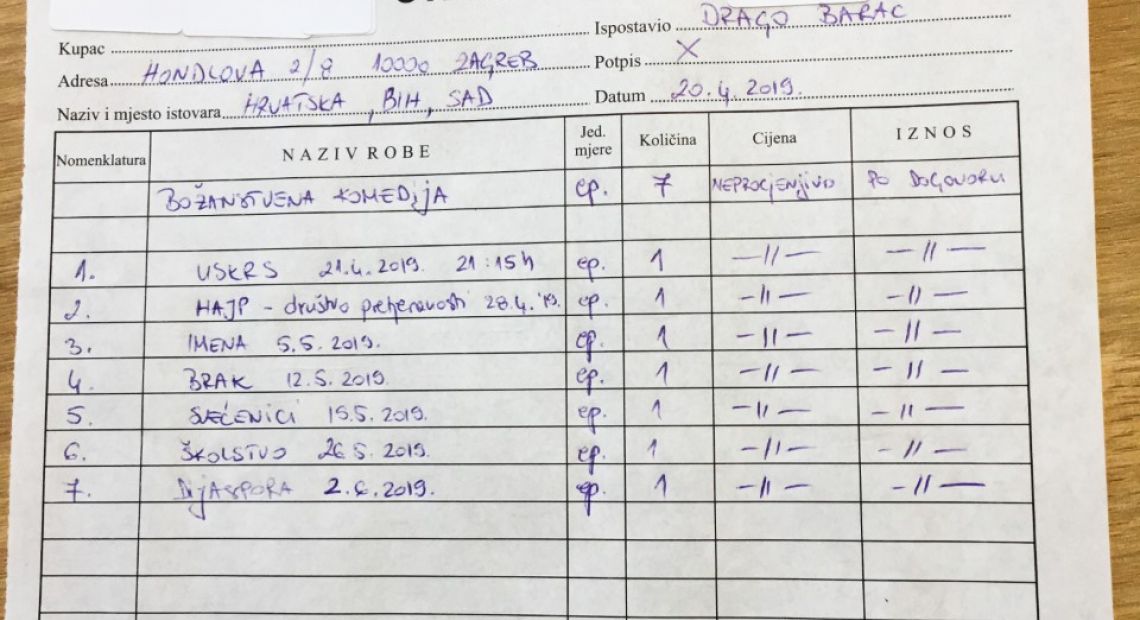 Kupac
Ispostavio DRAGO BARAC
Adresa HONDLOVA 2/8 10000 ZAGREB
Potpis X
Naziv i mjesto istovara HRVATSKA, BIH, SAD
Datum 20.4.2019.
Nomenklatura NAZIV ROBE Jed. mjere Količina Cijena IZNOS
BOŽANSTVENA KOMEDIjA ep. 7 NEPROCjENjIVO PO DOGOVORU
1. USKRS 21.4.2019. 21:15h ep. 1 -||- -||-
2. HAJP - društvo pretjeranosti 28.4.'19. ep. 1 -||- -||-
3. IMENA 5.5.2019. ep. 1 -||- -||-
4. BRAK 12.5.2019. ep. 1 -||- -||-
5. SVEĆENICI 19.5.2019. ep. 1 -||- -||-
6. ŠKOLSTVO 26.5.2019. ep. 1 -||- -||-
7. DIjASPORA 2.6.2019. ep. 1 -||- -||-